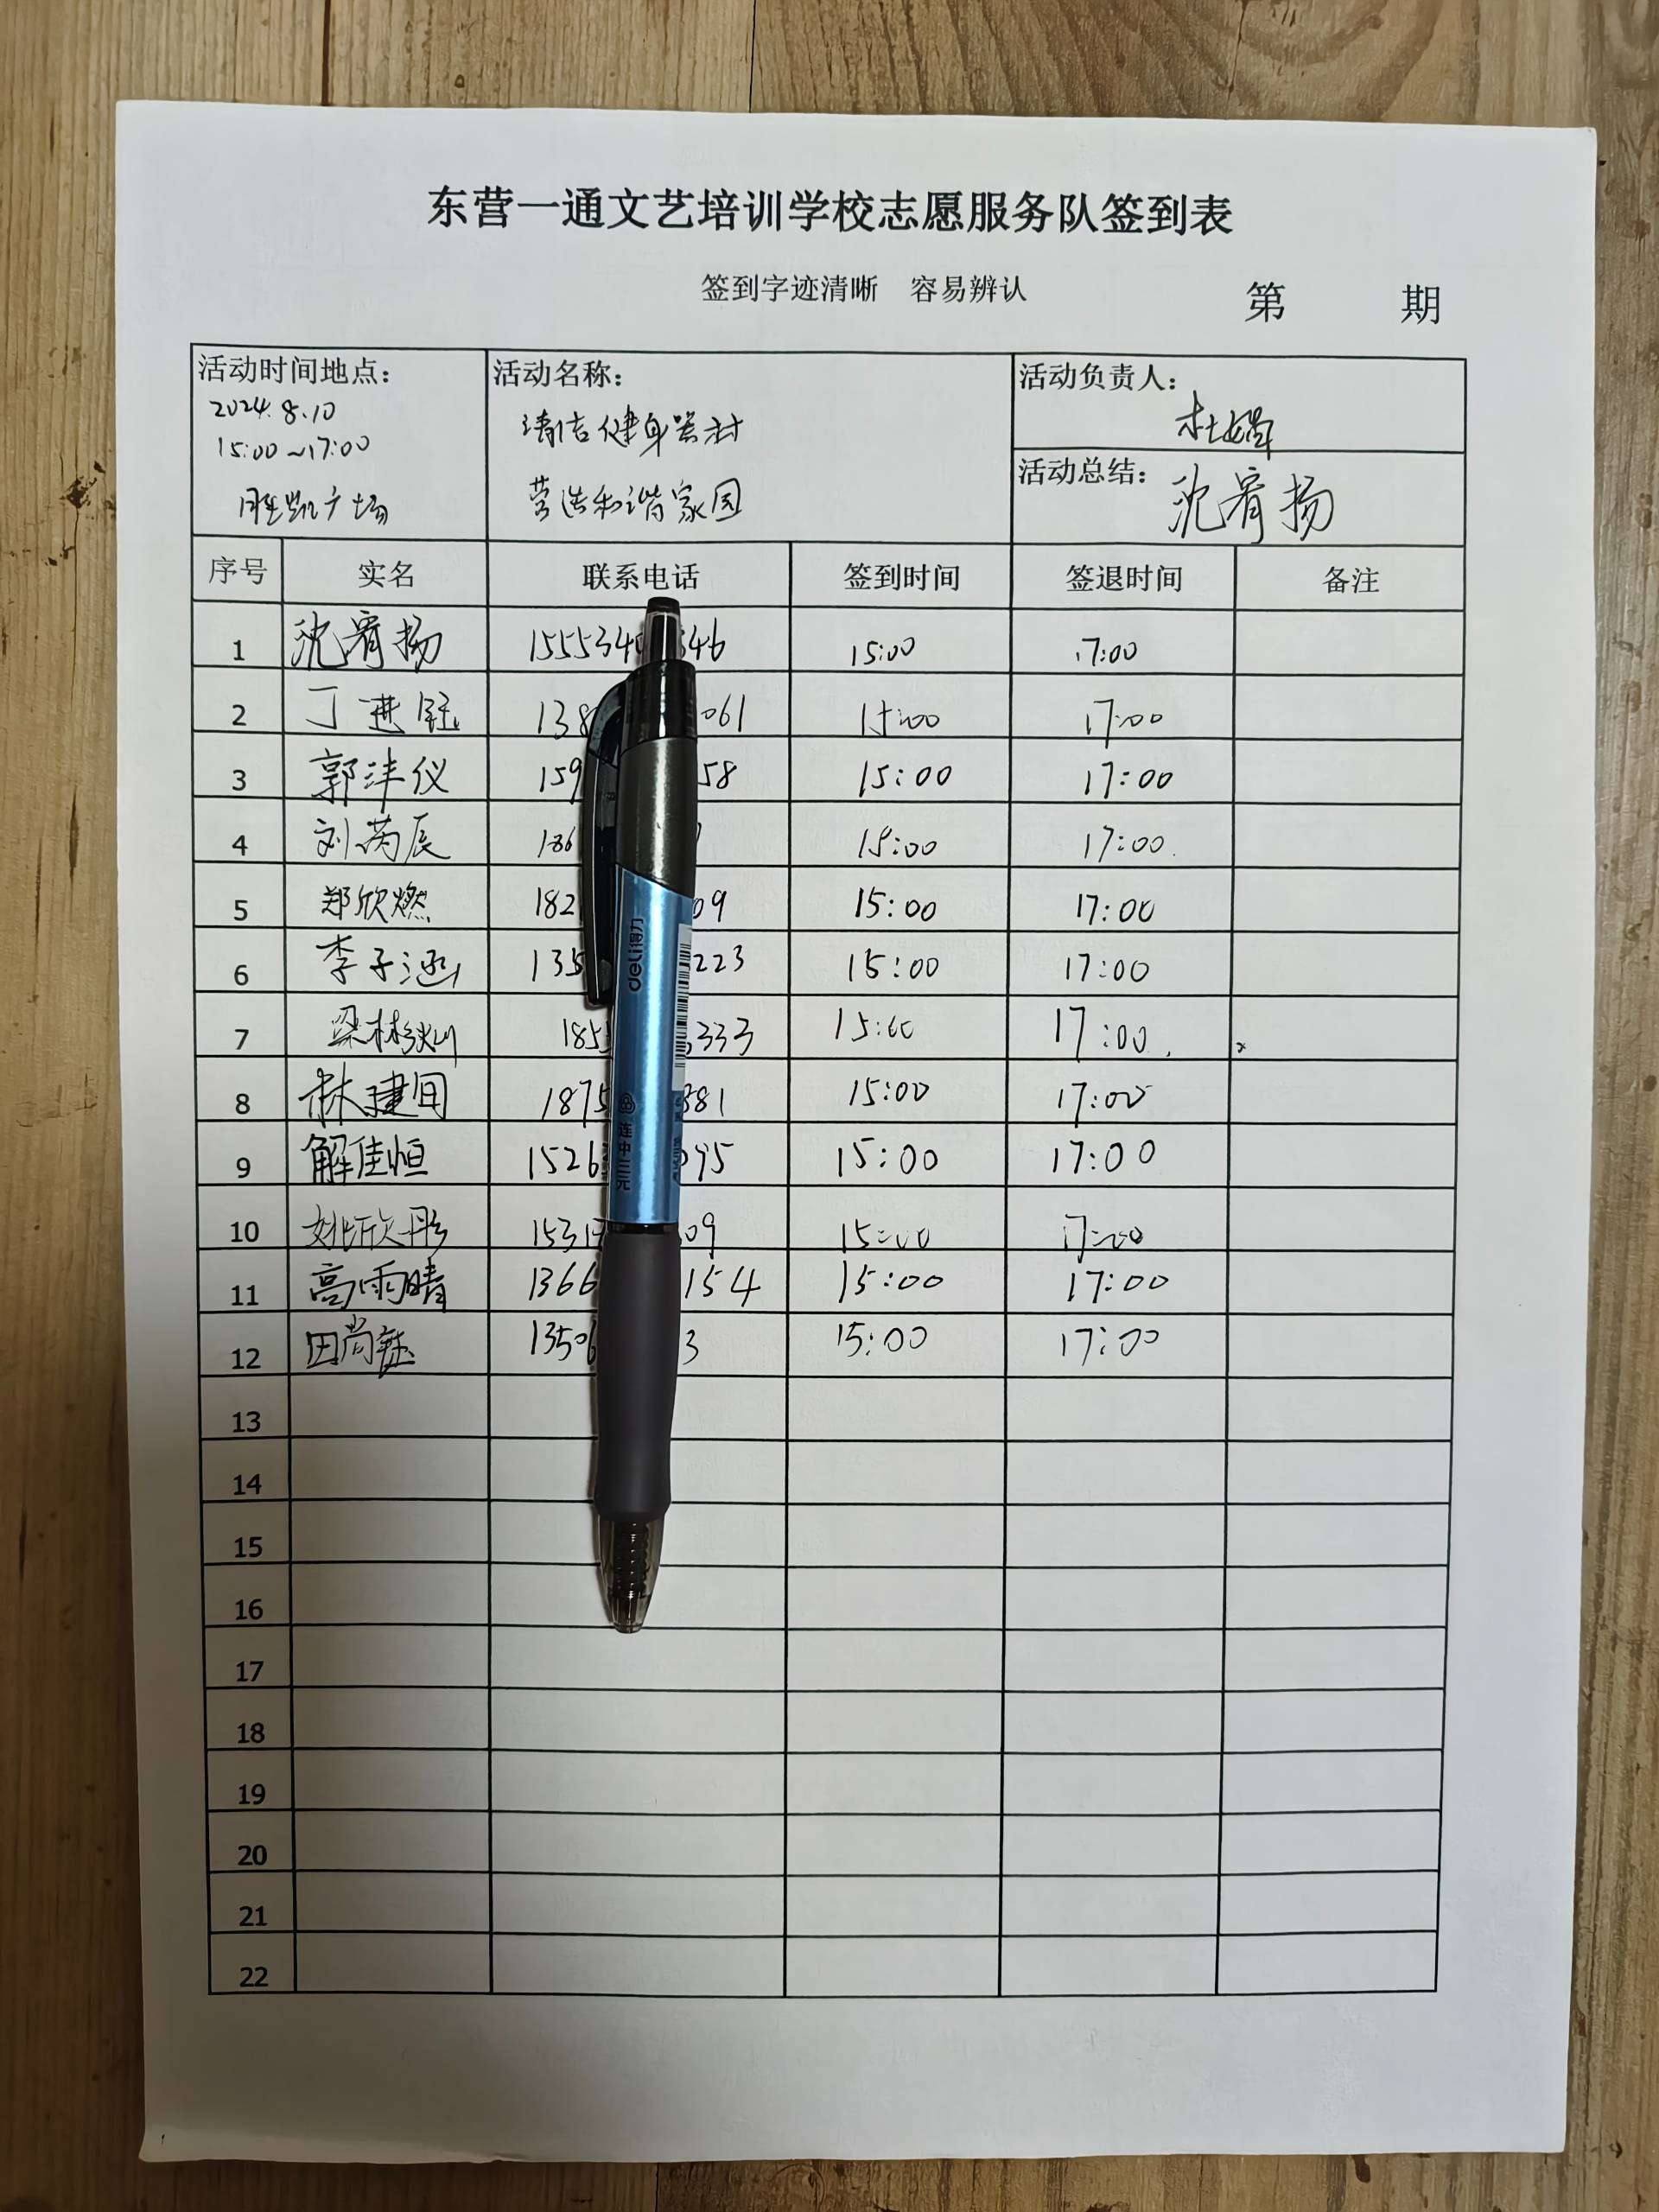 东营一通文艺培训学校志愿服务队签到表
签到字迹清晰 容易辨认
第 期
活动时间地点：
2024.8.10
15:00~17:00
胜凯广场
活动名称：
清洁健身器材
营造和谐家园
活动负责人：
杜
活动总结：
沈宥扬
序号 实名 联系电话 签到时间 签退时间 备注
1 沈宥扬 155534 346 15:00 17:00
2 丁进钰 138 061 15:00 17:00
3 郭沣仪 159 58 15:00 17:00
4 刘芮辰 186 15:00 17:00
5 郑欣燃 182 09 15:00 17:00
6 李子涵 135 223 15:00 17:00
7 梁彬灿 185 333 15:00 17:00
8 林建国 1875 381 15:00 17:00
9 解佳恒 1526 095 15:00 17:00
10 姚欣彤 1531 09 15:00 17:00
11 高雨晴 1366 154 15:00 17:00
12 田尚钰 1350 3 15:00 17:00
13
14
15
16
17
18
19
20
21
22
deli得力
连中三元